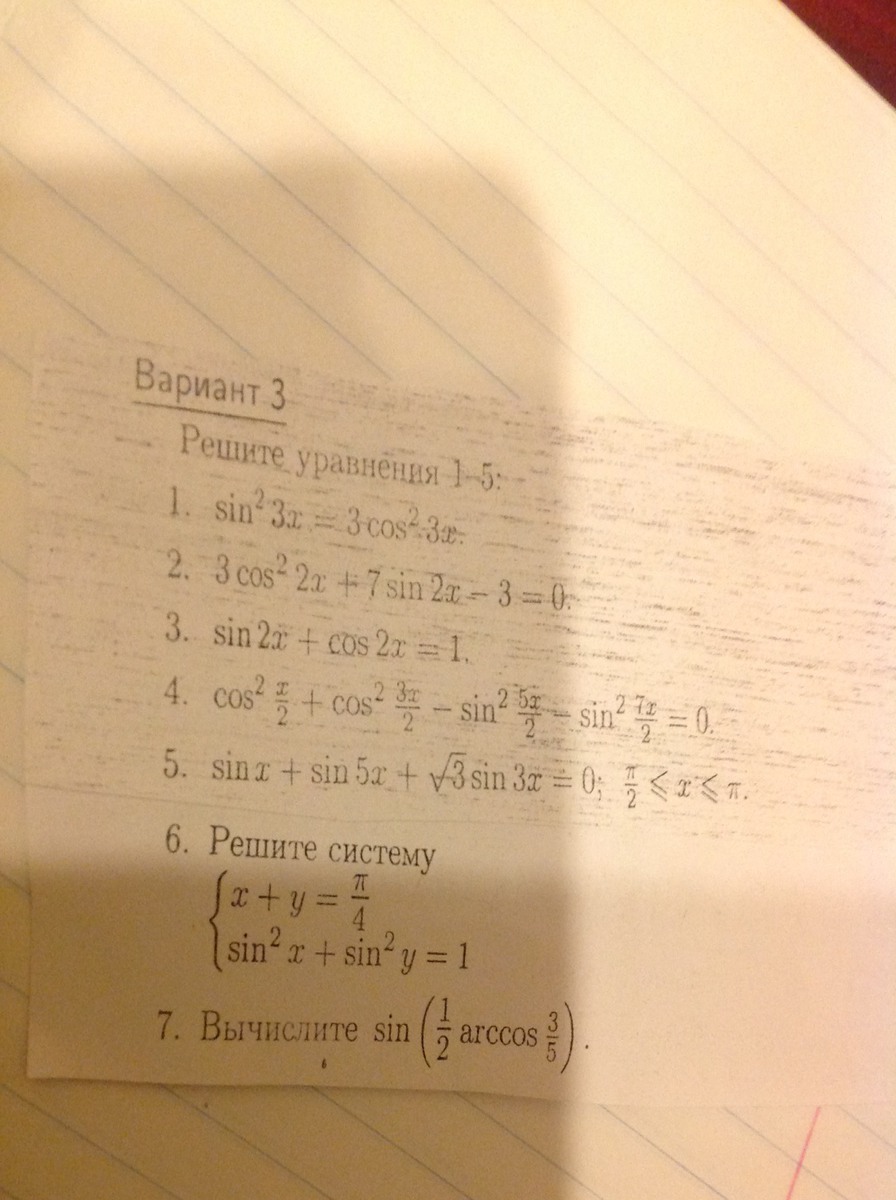 Вариант 3
Решите уравнения 1–5:
1. sin² 3x = 3 cos² 3x.
2. 3 cos² 2x + 7 sin 2x − 3 = 0.
3. sin 2x + cos 2x = 1.
4. cos² x/2 + cos² 3x/2 − sin² 5x/2 − sin² 7x/2 = 0.
5. sin x + sin 5x + √3 sin 3x = 0; π/2 ⩽ x ⩽ π.
6. Решите систему
{ x + y = π/4
sin² x + sin² y = 1
7. Вычислите sin (1/2 arccos 3/5).